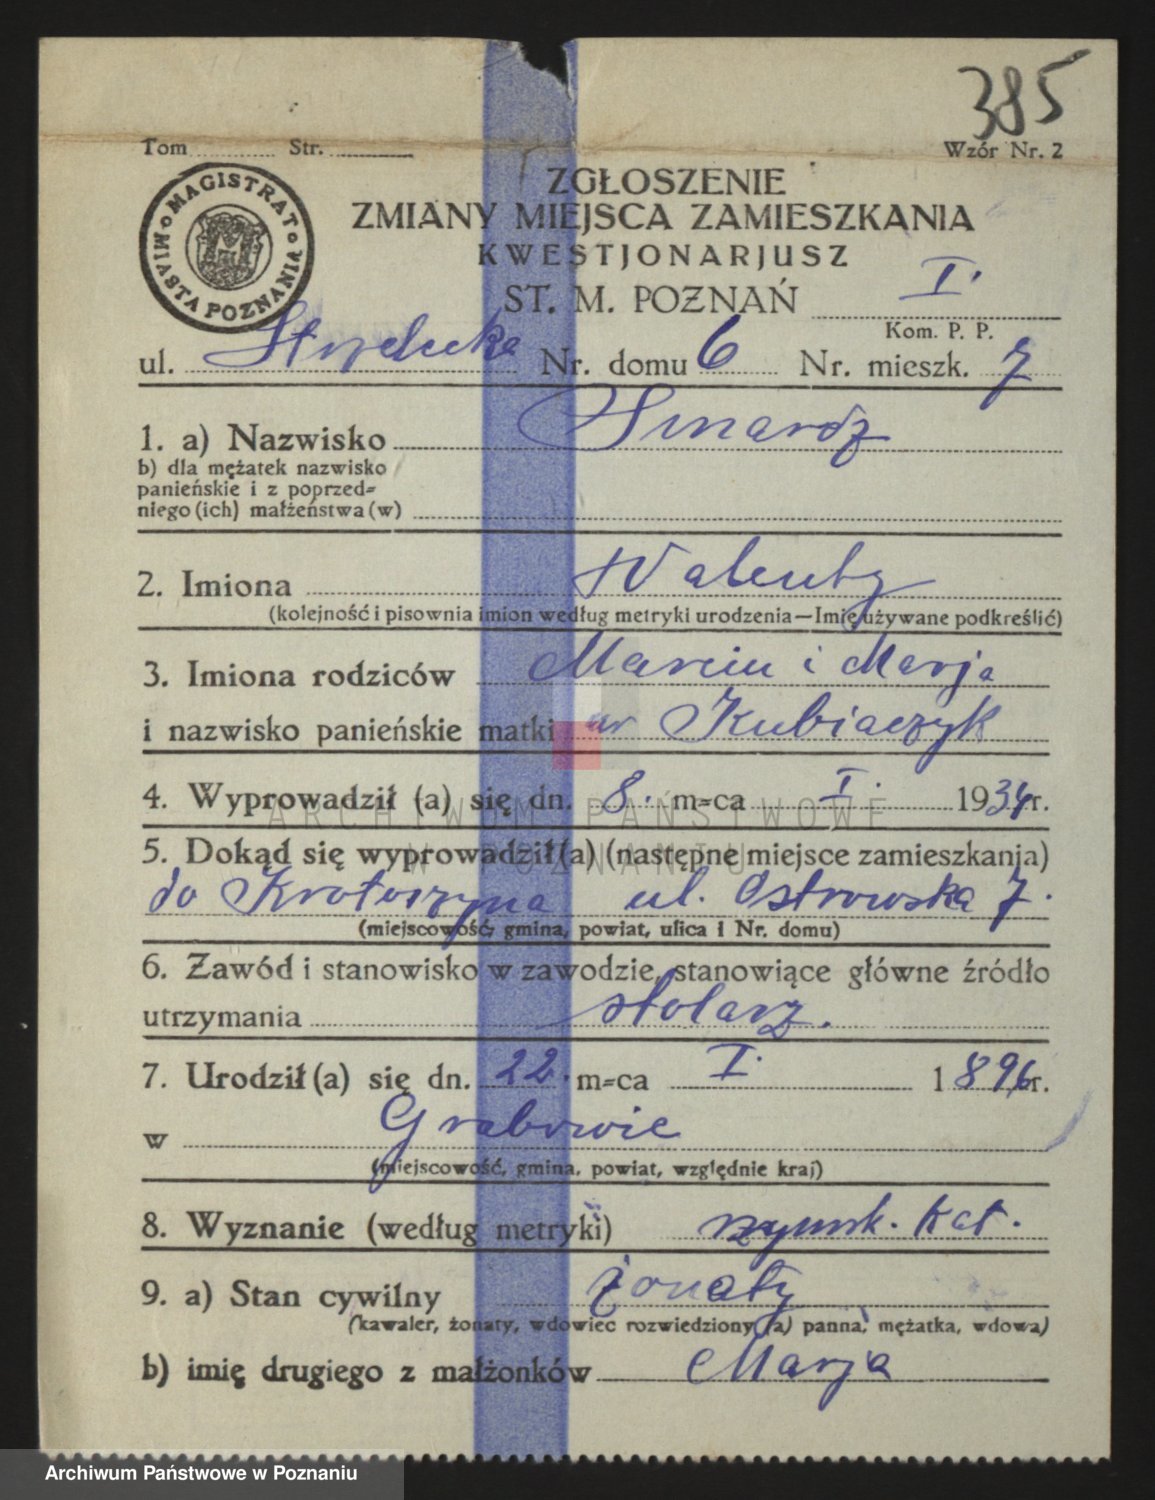 385
Tom Str. Wzór Nr. 2
MAGISTRAT MIASTA POZNANIA
ZGŁOSZENIE
ZMIANY MIEJSCA ZAMIESZKANIA
KWESTJONARJUSZ
ST. M. POZNAŃ I.
Kom. P. P.
ul. Strzelecka Nr. domu 6 Nr. mieszk. 7
1. a) Nazwisko Smardz
b) dla mężatek nazwisko
panieńskie i z poprzed=
niego (ich) małżeństwa (w)
2. Imiona Walenty
(kolejność i pisownia imion według metryki urodzenia—Imię używane podkreślić)
3. Imiona rodziców Marcin i Marja
i nazwisko panieńskie matki ur Kubiaczyk
4. Wyprowadził (a) się dn. 8. m=ca I. 1934 r.
ARCHIWUM PAŃSTWOWE
W POZNANIU
5. Dokąd się wyprowadził(a) (następne miejsce zamieszkania)
do Krotoszyna ul. Ostrowska 7.
(miejscowość, gmina, powiat, ulica i Nr. domu)
6. Zawód i stanowisko w zawodzie, stanowiące główne źródło
utrzymania stolarz.
7. Urodził (a) się dn. 22. m=ca I. 1896 r.
w Grabowie
(miejscowość, gmina, powiat, względnie kraj)
8. Wyznanie (według metryki) rzymsk. kat.
9. a) Stan cywilny żonaty
(kawaler, żonaty, wdowiec rozwiedziony (a) panna, mężatka, wdowa)
b) imię drugiego z małżonków Marja
Archiwum Państwowe w Poznaniu